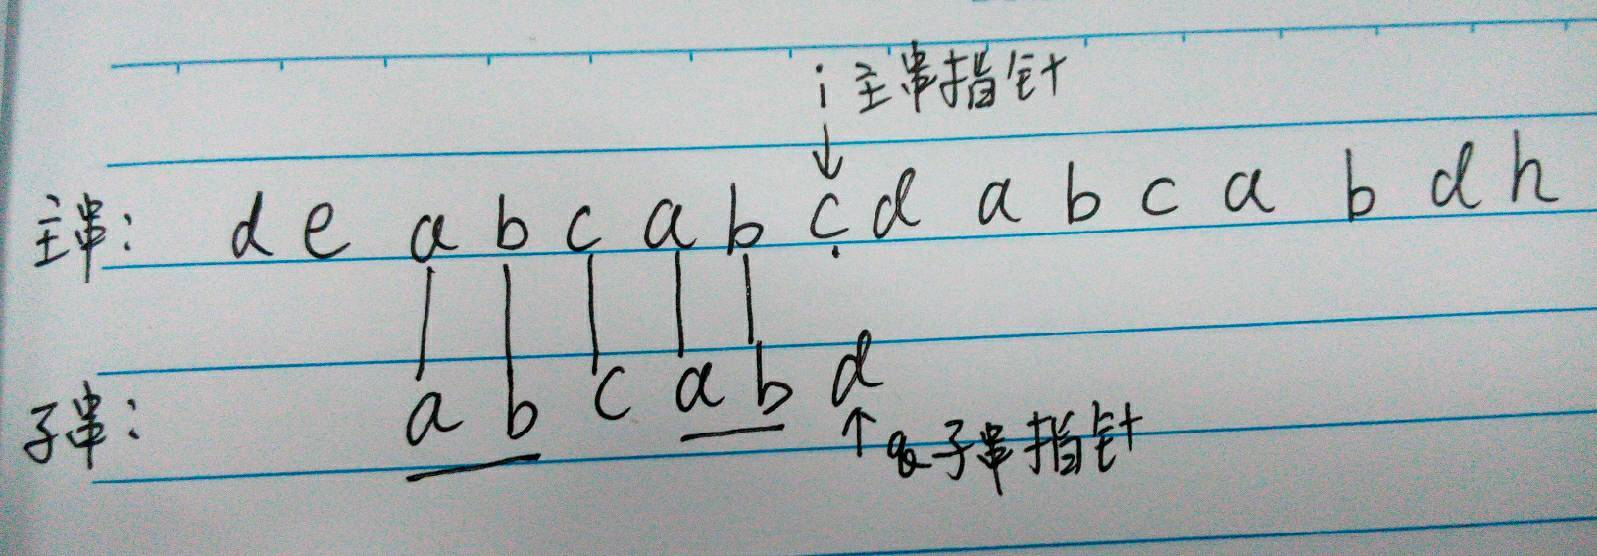 i 主串指针
主串: d e a b c a b c d a b c a b d h
子串: a b c a b d
子串指针